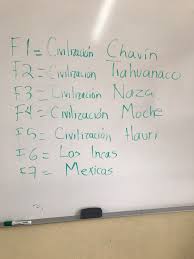 F1 = Civilización Chavín
F2 = Civilización Tiahuanaco
F3 = Civilización Naza
F4 = Civilización Moche
F5 = Civilización Hauri
F6 = Los Incas
F7 = Mexicas